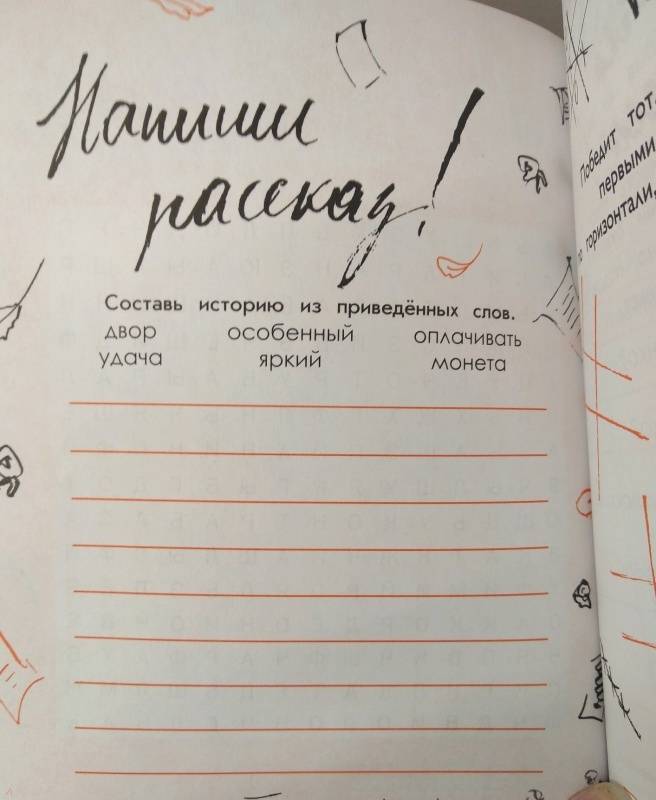 Напиши
рассказ!
Составь историю из приведённых слов.
двор особенный оплачивать
удача яркий монета
Победит тот,
первыми
по горизонтали,